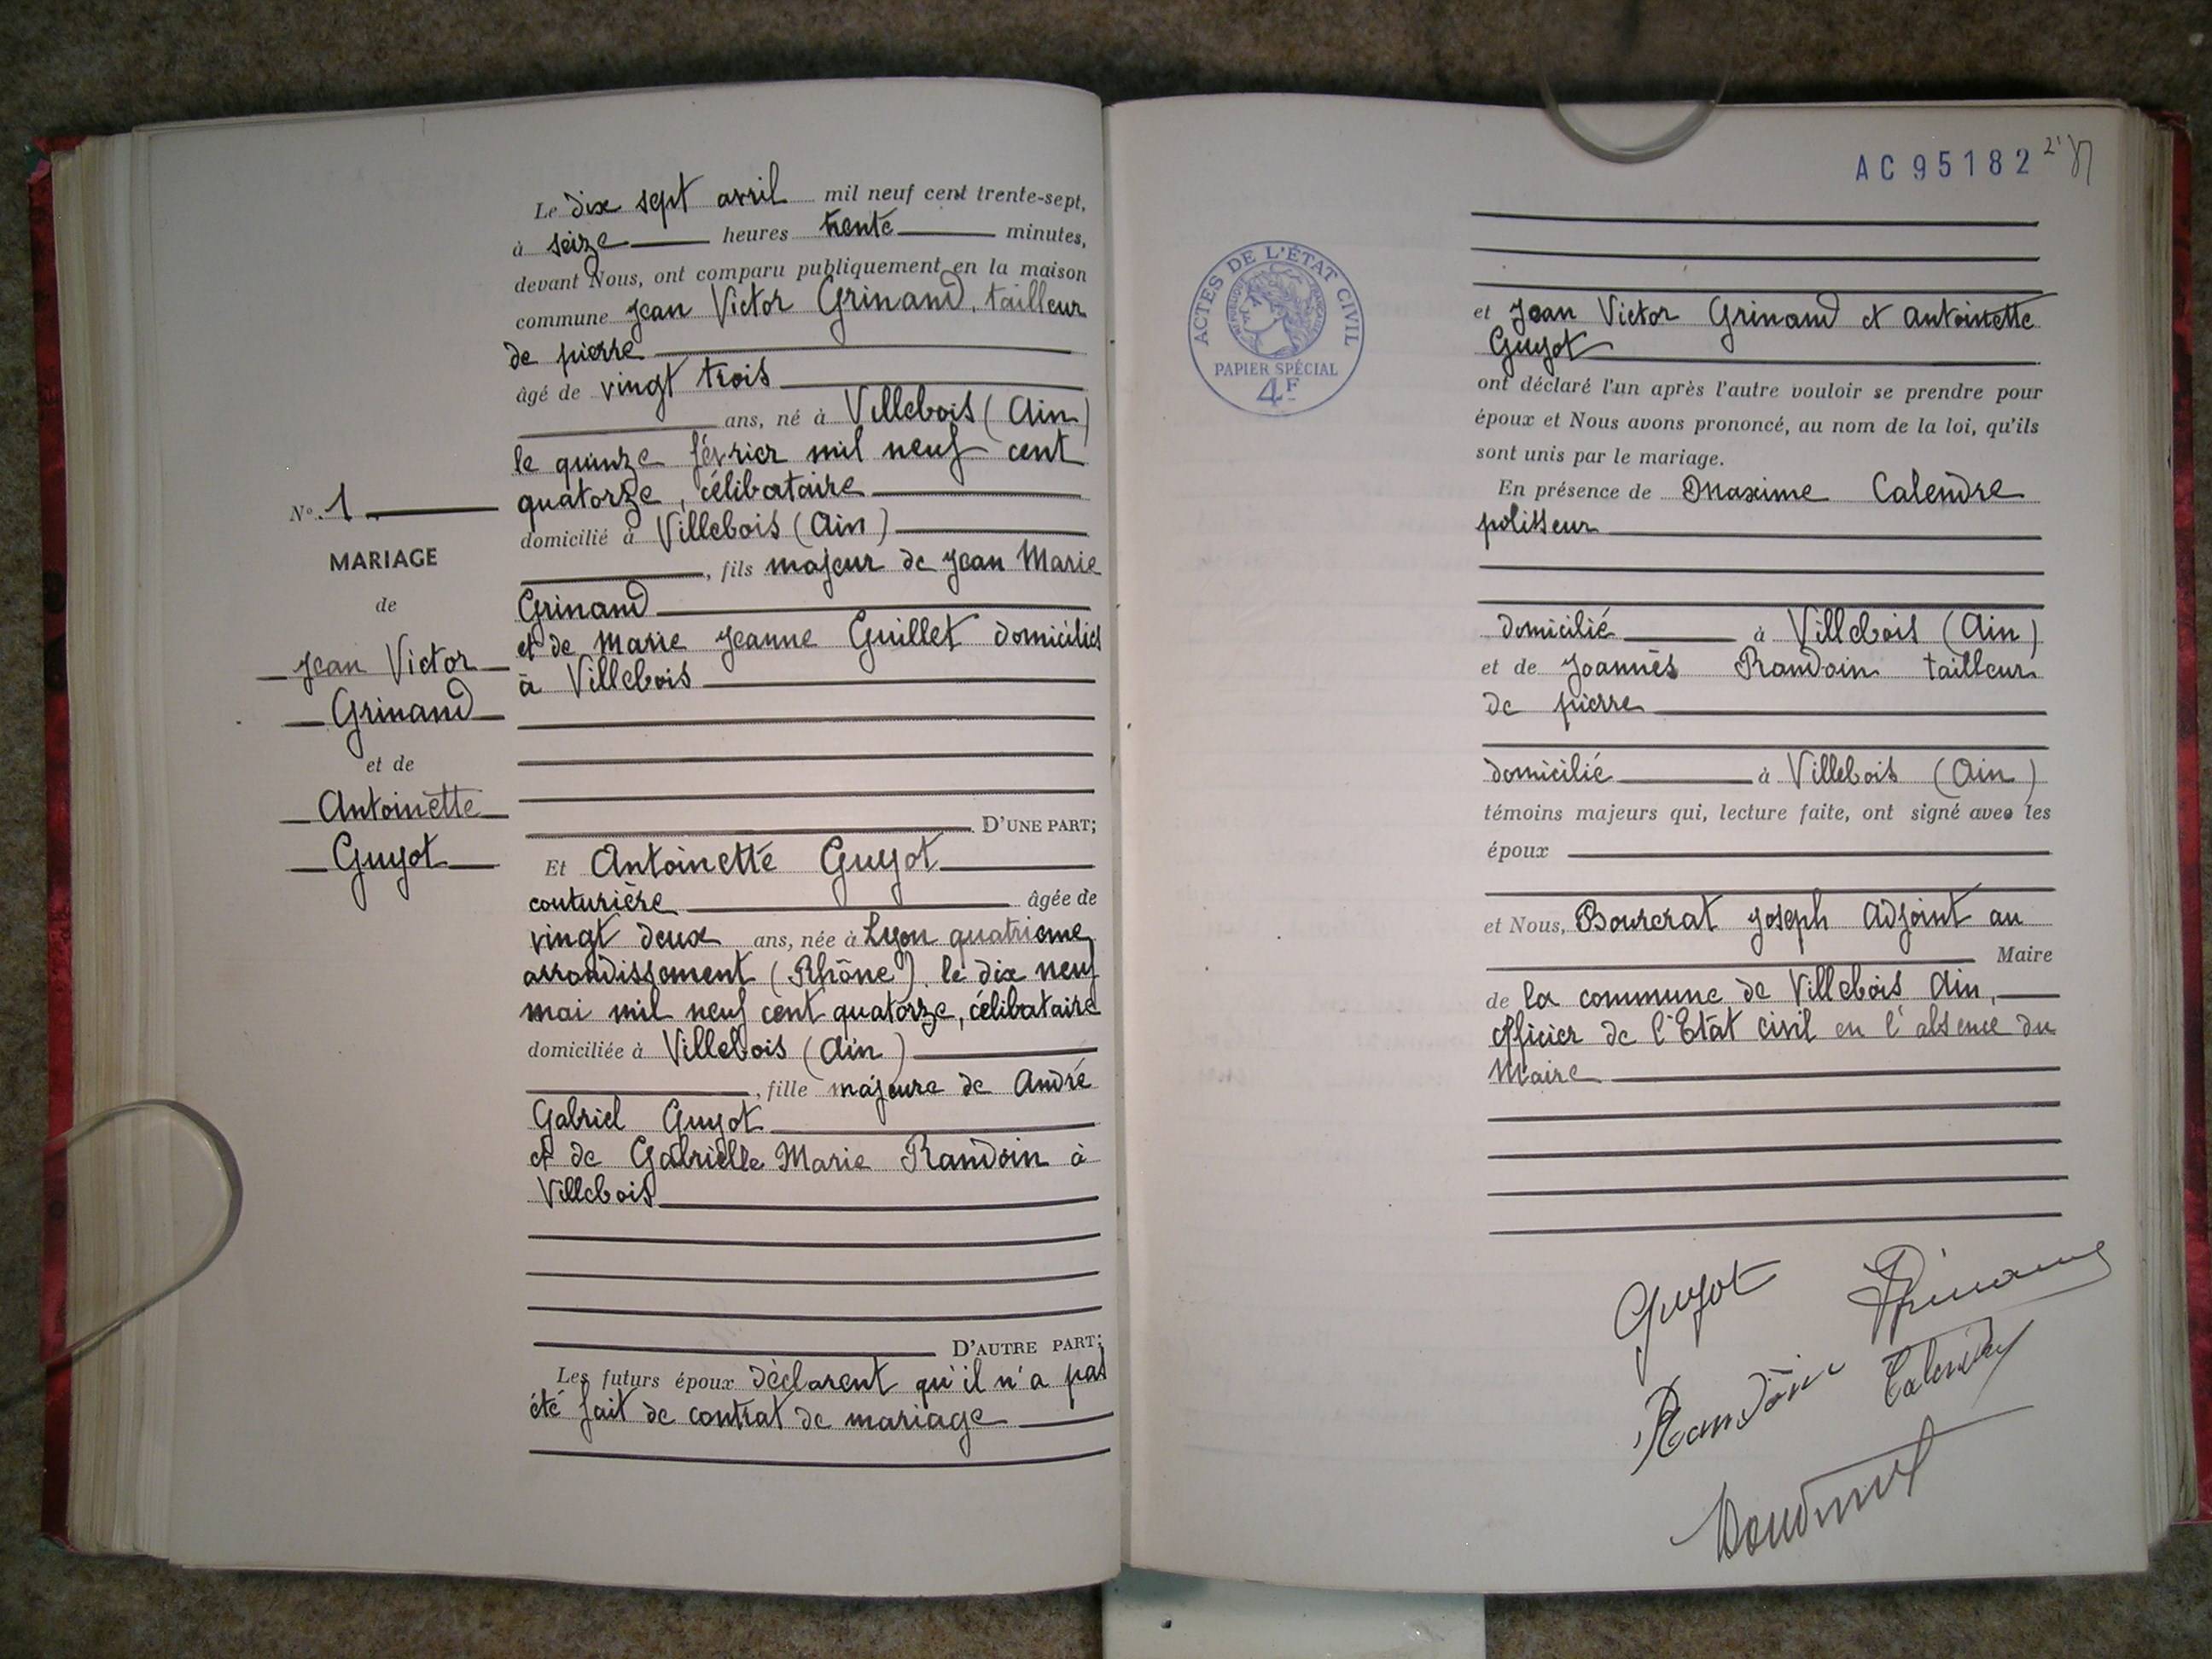 Le dix sept avril mil neuf cent trente-sept,
à seize heures trente minutes,
devant Nous, ont comparu publiquement en la maison
commune Jean Victor Grinand, tailleur
de pierre
âgé de vingt trois
ans, né à Villebois (Ain)
le quinze février mil neuf cent
quatorze, célibataire
domicilié à Villebois (Ain)
, fils majeur de Jean Marie
Grinand
et de Marie Jeanne Guillet domiciliés
à Villebois
D'UNE PART;
N° 1
MARIAGE
de
Jean Victor
Grinand
et de
Antoinette
Guyot
Et Antoinette Guyot
couturière âgée de
vingt deux ans, née à Lyon quatrieme
arrondissement (Rhône) le dix neuf
mai mil neuf cent quatorze, célibataire
domiciliée à Villebois (Ain)
, fille majeure de André
Gabriel Guyot
et de Gabrielle Marie Randoin à
Villebois
D'AUTRE PART;
Les futurs époux déclarent qu'il n'a pas
été fait de contrat de mariage
AC95182
ACTES DE L'ÉTAT CIVIL
RÉPUBLIQUE FRANÇAISE
PAPIER SPÉCIAL
4F
et Jean Victor Grinand et Antoinette
Guyot
ont déclaré l'un après l'autre vouloir se prendre pour
époux et Nous avons prononcé, au nom de la loi, qu'ils
sont unis par le mariage.
En présence de Maxime Calendre
polisseur
domicilié à Villebois (Ain)
et de Joannès Randoin tailleur
de pierre
domicilié à Villebois (Ain)
témoins majeurs qui, lecture faite, ont signé avec les
époux
et Nous, Bourrat Joseph Adjoint au
Maire
de la commune de Villebois Ain,
officier de l'Etat civil en l'absence du
Maire
Guyot
Grinand
Randoin
Calendre